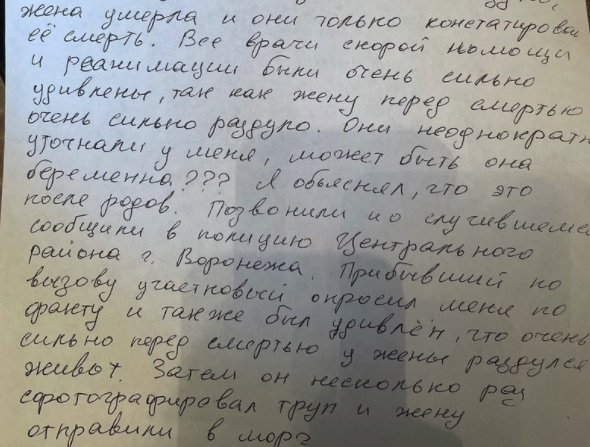 жена умерла и они только констатировал
её смерть. Все врачи скорой помощи
и реанимации были очень сильно
удивлены, так как жену перед смертью
очень сильно раздуло. Они неоднократн
уточнали у меня, может быть она
беременна??? Я объяснял, что это
после родов. Позвонили и о случившемся
сообщили в полицию Центрального
района г. Воронежа. Прибывший по
вызову участковый опросил меня по
факту и также был удивлён, что очень
сильно перед смертью у жены раздулся
живот. Затем он несколько раз
сфотографировал труп и жену
отправили в морг